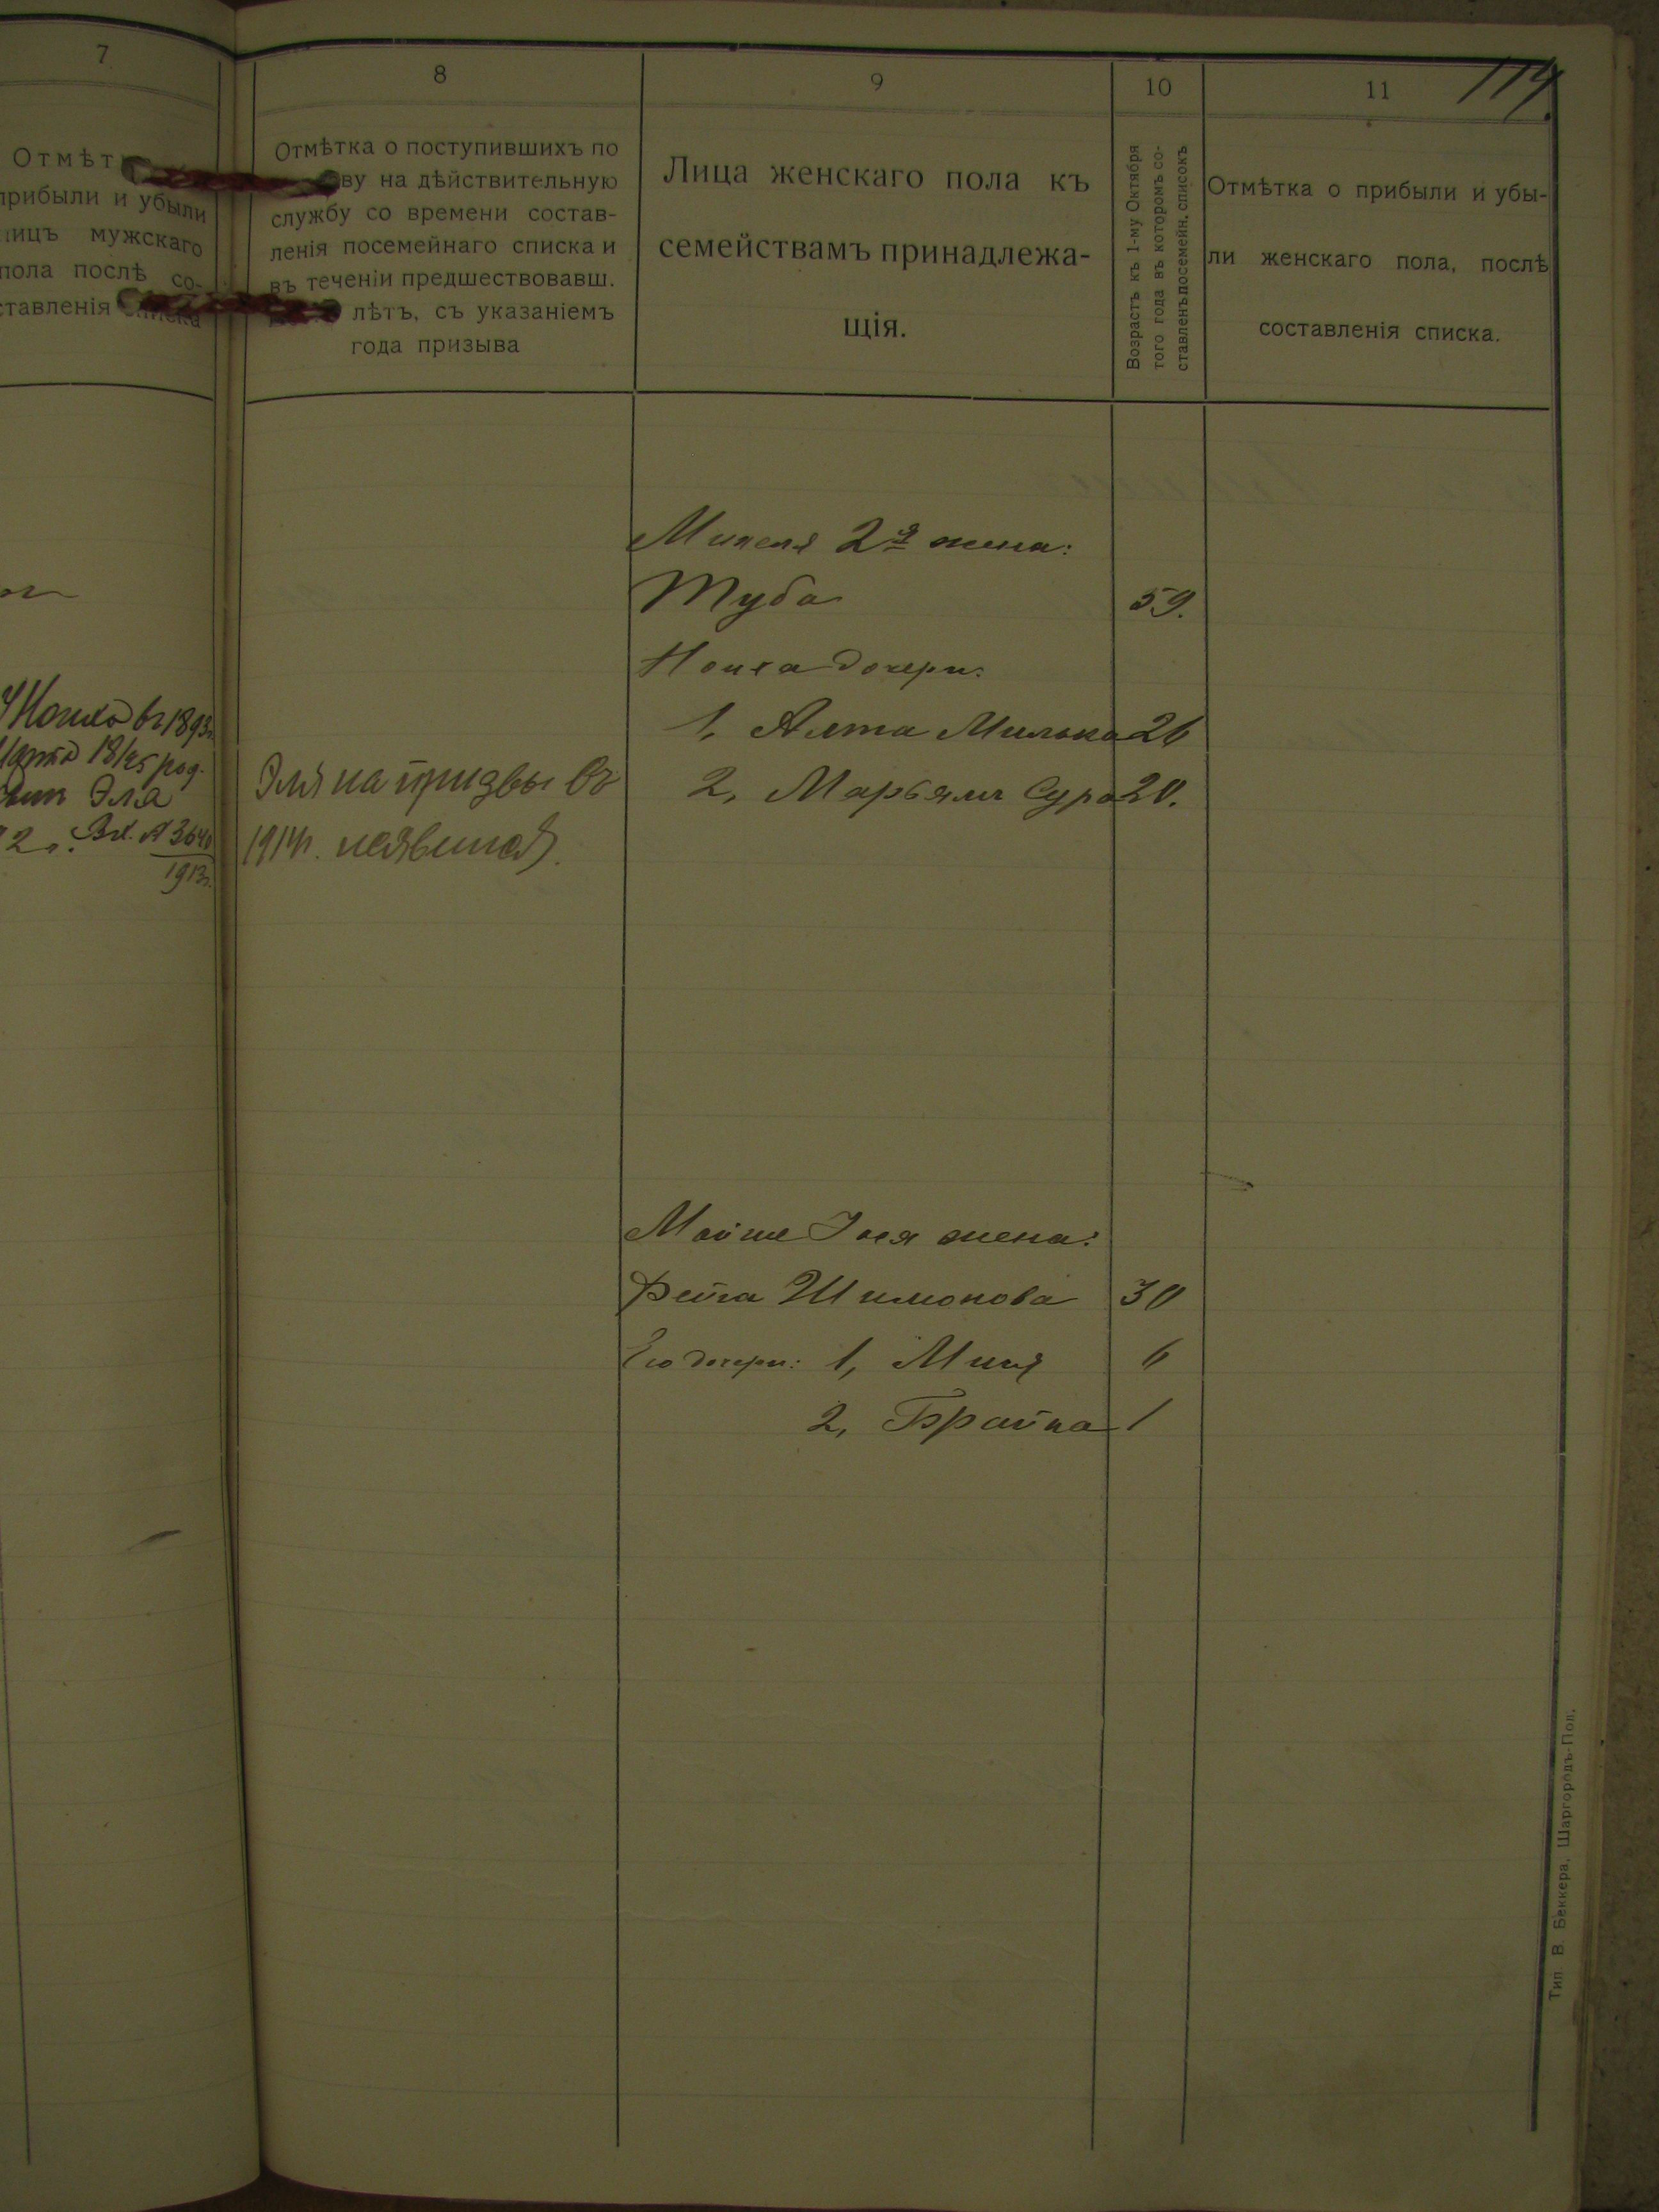 7
Отмѣт
прибыли и убыли
лицъ мужскаго
пола послѣ со-
ставленія списка
8
Отмѣтка о поступившихъ по
ву на дѣйствительную
службу со времени состав-
ленія посемейнаго списка и
въ теченіи предшествовавш.
лѣтъ, съ указаніемъ
года призыва
9
Лица женскаго пола къ
семействамъ принадлежа-
щія.
10
Возрастъ къ 1-му Октября
того года въ которомъ со-
ставленъ посемейн. списокъ
11
Отмѣтка о прибыли и убы-
ли женскаго пола, послѣ
составленія списка.
114
У Ноиха въ 1893г.
Марта 18/25 род.
Эля
2 г. Вх. № 3640
1913г.
Эля на призвы въ
1914г. неявился.
2я жена:
Туба 59.
Ноиха дочери:
1, Алта Милька 26
2, Марьямъ Сура 20.
Мойше Іося жена:
Фейга Шимонова 30
Его дочери: 1, Миня 6
2, Брайна 1
Тип В. Беккера, Шаргородъ-Под.